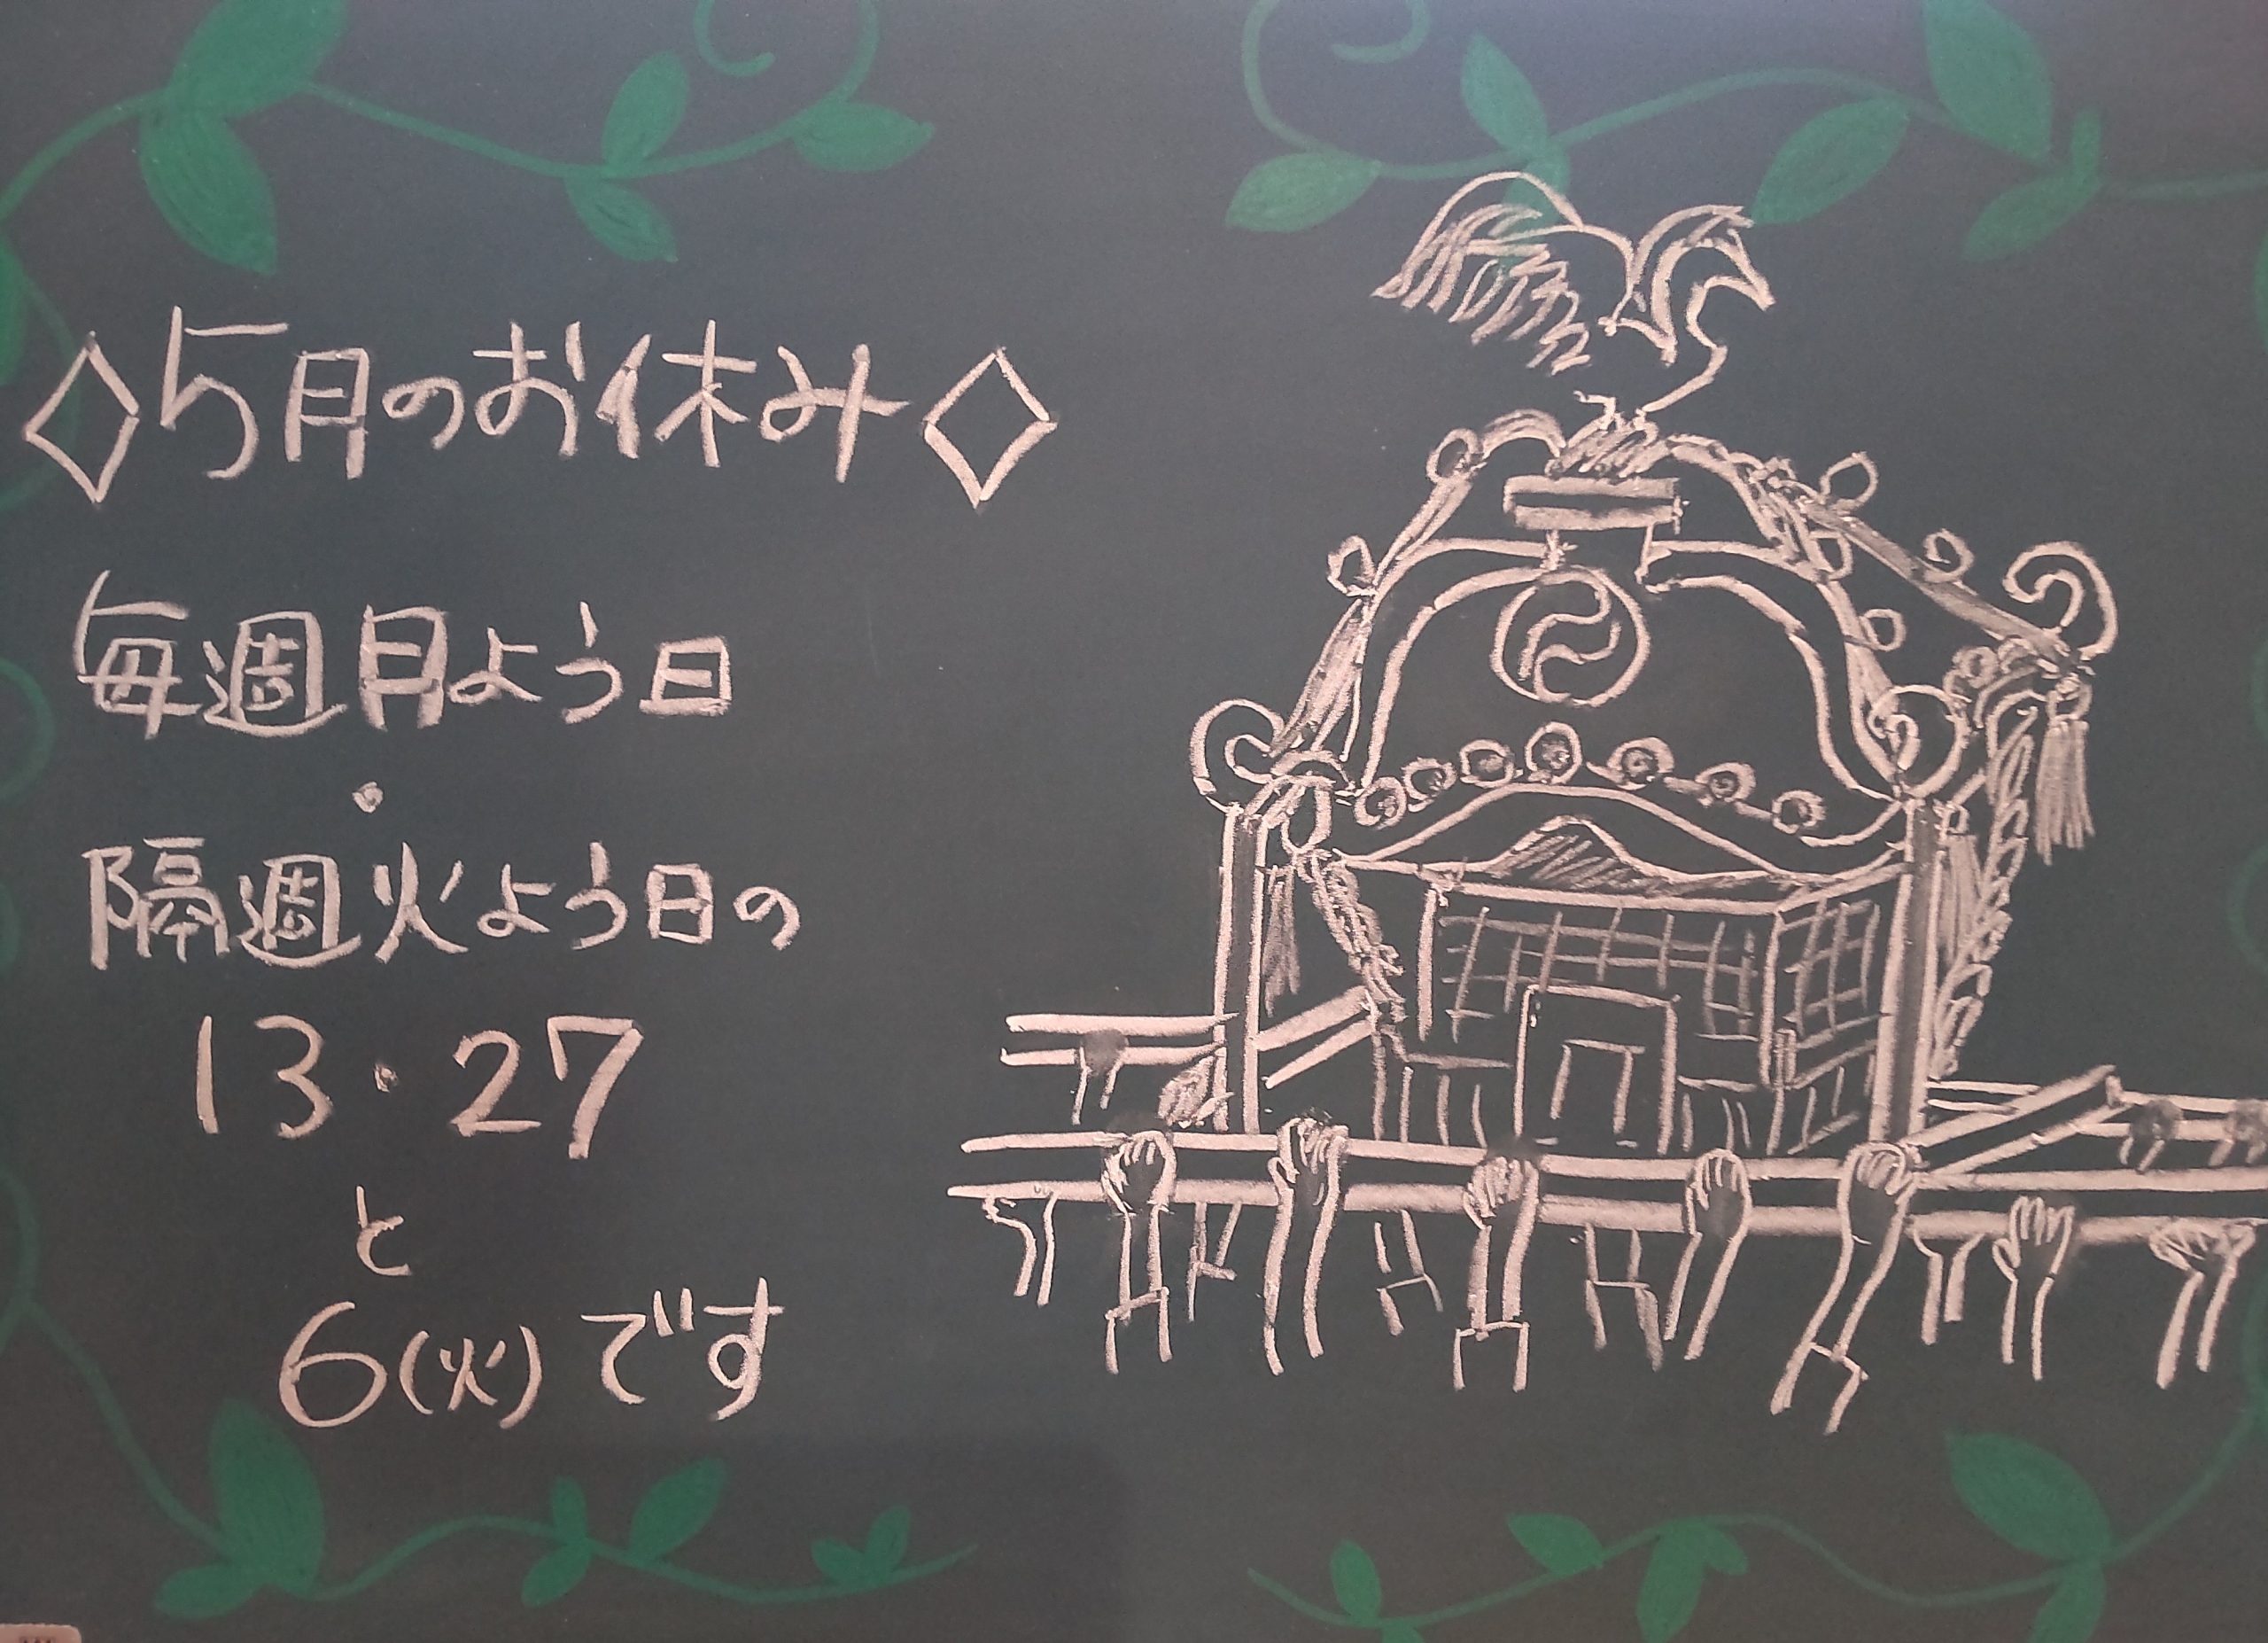 ◇5月のお休み◇
毎週月よう日
・
隔週火よう日の
13・27
と
6(火)です